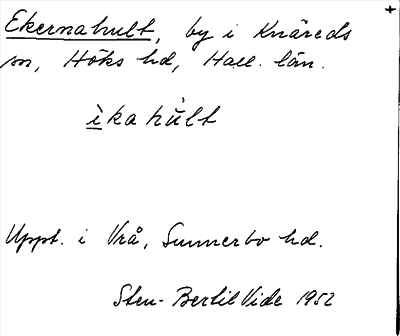 Ekernahult, by i Knäreds
sn, Höks hd, Hall. län.
ìkahùlt
Uppt. i Vrå, Sunnerbo hd.
Sten-Bertil Vide 1952